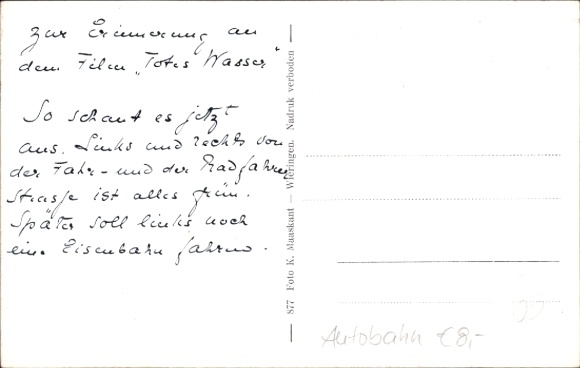 Zur Erinnerung an
dem Film „Totes Wasser"
So schaut es jetzt
aus. Links und rechts von
der Fahr- und der Radfahrer
strasse ist alles grün.
Später soll links noch
eine Eisenbahn fahren.
877 Foto K. Maaskant — Wieringen. Nadruk verboden
Autobahn €8,-